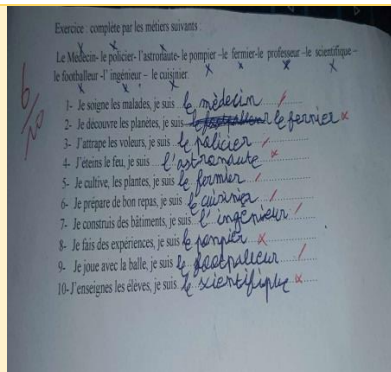 Exercice : complète par les métiers suivants :
Le Médecin- le policier- l'astronaute- le pompier -le fermier-le professeur -le scientifique –
le footballeur -l' ingénieur – le cuisinier
6/10
1- Je soigne les malades, je suis le médecin
2- Je découvre les planètes, je suis le footballeur le fernier
3- J'attrape les voleurs, je suis le policier
4- J'éteins le feu, je suis l'astronaute
5- Je cultive, les plantes, je suis le fermier
6- Je prépare de bon repas, je suis le cuisinier
7- Je construis des bâtiments, je suis l'ingénieur
8- Je fais des expériences, je suis le pompier
9- Je joue avec la balle, je suis le footballeur
10- J'enseignes les élèves, je suis le scientifique